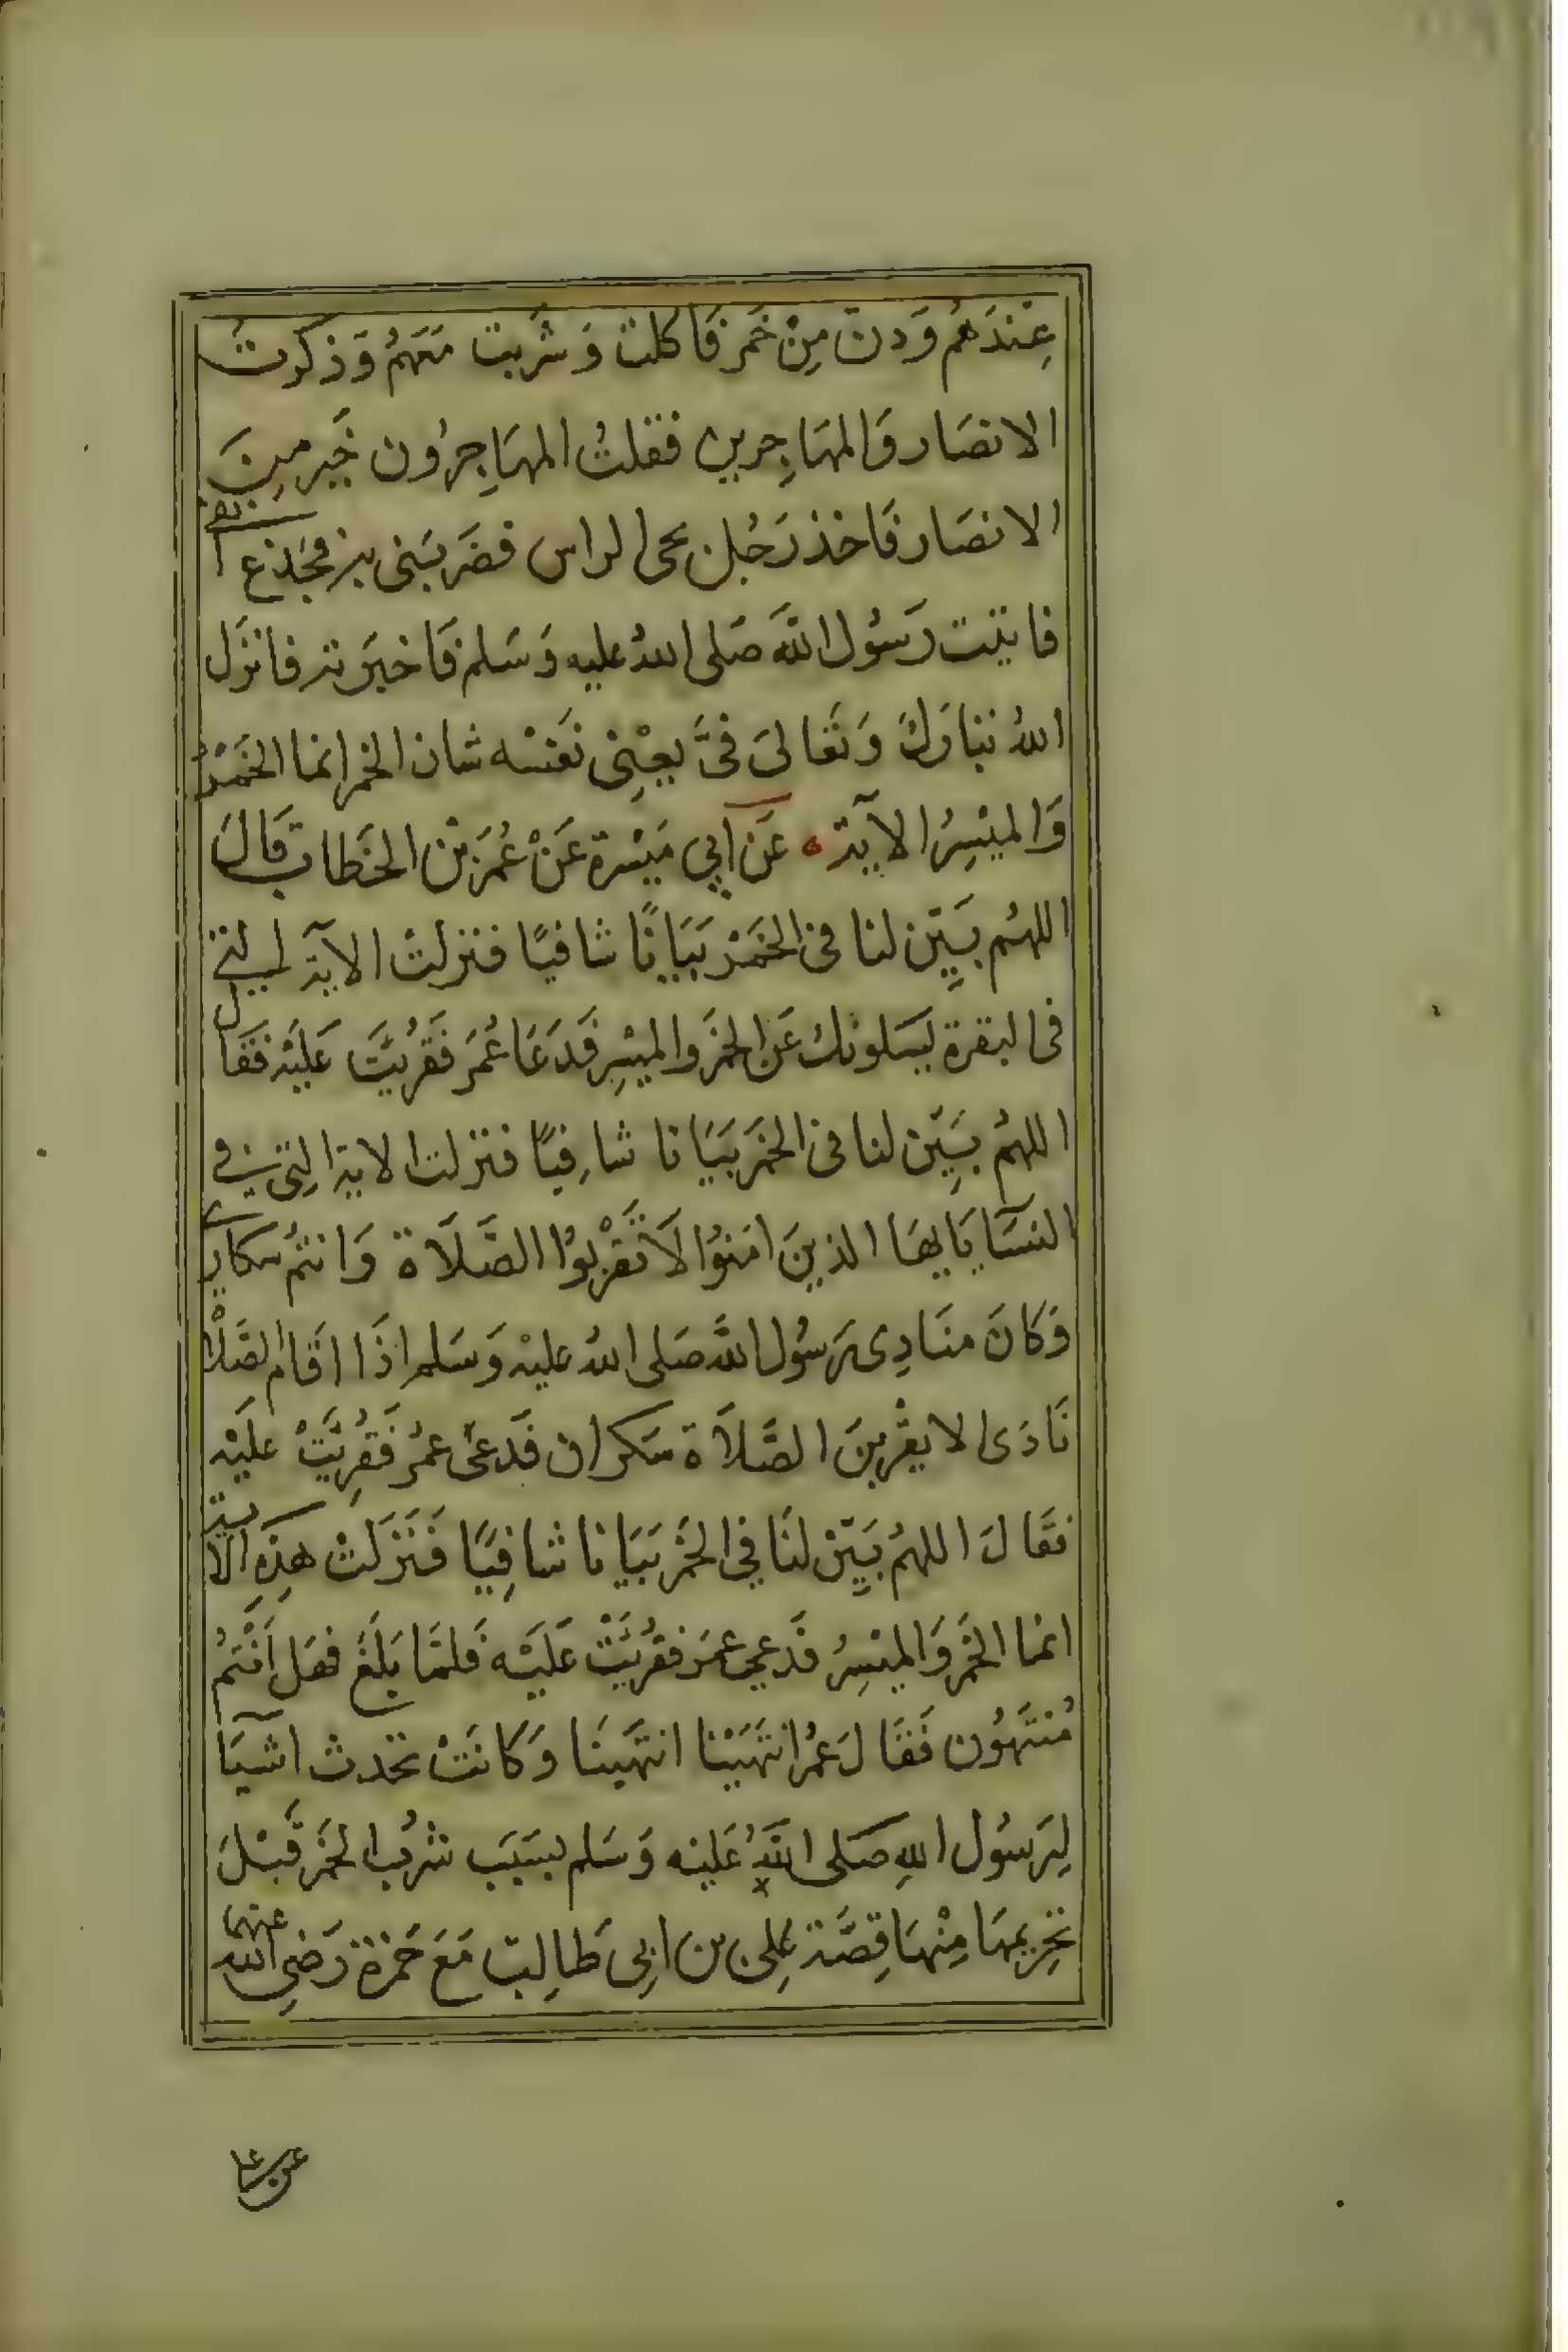 عِنْدَهُم وَدن مِنْ خَمر فَاكلت وَشَربت مَعَهُم وَذكرت
الانصَار وَالمهَاجِرين فقلتُ المهَاجِرُون خَير مِنَ
الانصَار فَاخذ رَجُل لحى الراس فضَربَنى به فجَذع انفى
فاتيت رَسُول اللَّه صَلى اللهُ عليه وَسَلم فَاخبَرته فانزَل
اللهُ تبَارَكَ وَتَعَالىَ فىَّ يعِْنى نَفسَه شان الخمر انما الخَمْرُ
وَالميْسِرُ الآية ، عَن اَبِي مَيْسرة عَنْ عُمَر بْن الخَطاب قَالَ
اللهُم بَيِّن لنا فى الخَمْر بَيَانًا شافيًا فنزلتْ الآية التى
فى البقرة يسَلونك عَن الخمَر والميْسِر فَدَعَا عُمَر فَقُريَّت عَليْه فقَال
اللهُم بَيِّن لنا فى الخمَر بَيَانا شافِيًا فنزلت الاية التِى فى
النسَآ يَايهَا الذينَ امَنوُا لَا تَقْربُوا الصَّلَاة وَانتُم سكارى
وَكانَ منَادِى رَسُول اللَّه صَلى اللهُ عليْه وَسَلم اذَا اقَام الصَّلاْة
نَادَى لا يقْربَنَ الصَّلاَة سَكران فَدعىَ عمُر فَقُرِيَّتْ عليَْه
فقَالَ اللهُم بَيِّنْ لنَا فِي الخَمْر بَيَانا شافِيًا فَنَزَلَتْ هذِهِ الاية
انما الخَمْر وَالميْسِرُ فَدعي عمَر فقُرئَتْ عَليَْه فَلمَّا بَلَغَ فهَل اَنْتُمْ
مُنْتَهُون فَقَالَ عُمر انتَهَيْنا انتَهَينَا وَكَانَتْ تحدث اَشيَآ
لِرَسُول اللهِ صَلى اللَّهُ عَليْه وَسَلم بسَبَب شُرب الخَمْر قَبْلَ
تحِريمهَا مِنْهَا قِصَّة عِلى بن ابِى طَالِب مَعَ حَمْزة رَضِي الله عنهما
عن على